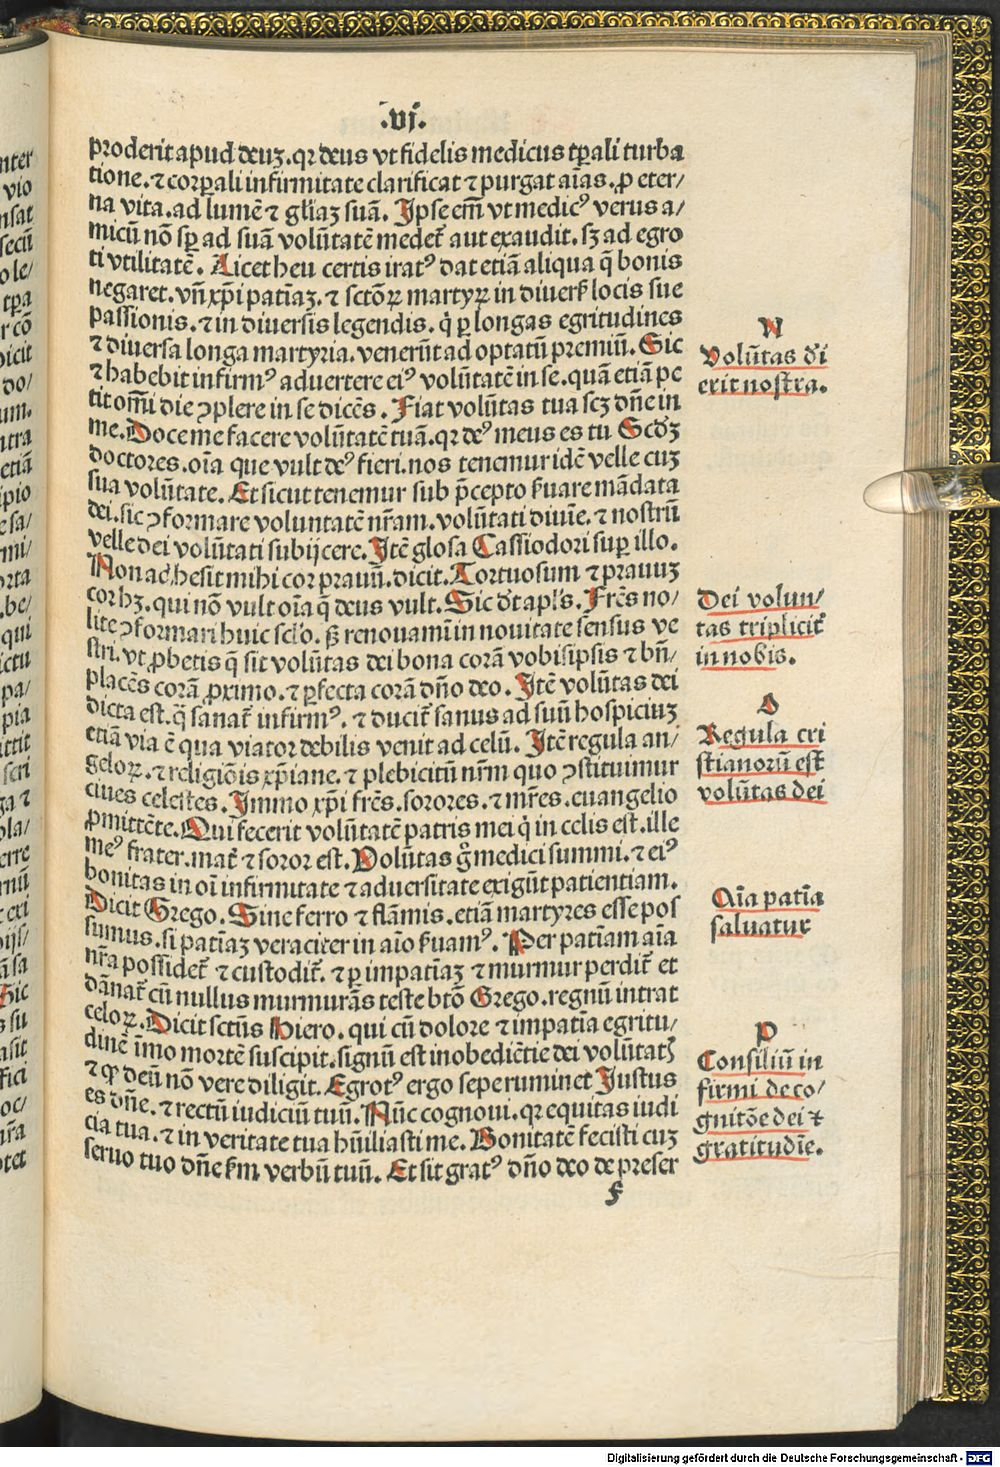 .vj.
proderit apud deuʒ. qꝛ deus vt fidelis medicus tꝑali turba
tione. ⁊ corꝑali infirmitate clarificat ⁊ purgat aīas. ꝓ eter/
na vita. ad lumē ⁊ gl̄iaʒ suā. Ipse em̄ vt medicꝰ verus a/
micū nō sꝑ ad suā volūtatē medet᷑ aut exaudit. sʒ ad egro
ti vtilitatē. Licet heu certis iratꝰ dat etiā aliqua q̄ bonis
negaret. vn̄ xp̄i patiāʒ. ⁊ sctōꝝ martyꝝ in diuers̄ locis sue
passionis. ⁊ in diuersis legendis. q̇ ꝑ longas egritudines
⁊ diuersa longa martyria. venerūt ad optatū premiū. Sic
⁊ habebit infirmꝰ aduertere eiꝰ volūtatē in se. quā etiā pe
tit om̄i die ꝯplere in se dicēs. Fiat volūtas tua scʒ dn̄e in
me. Doce me facere volūtatē tuā. qꝛ deꝰ meus es tu Scd̓ʒ
doctores. oīa que vult deꝰ fieri. nos tenemur idē velle cuʒ
sua volūtate. Et sicut tenemur sub p̄cepto s̓uare mādata
dei. sic ꝯformare voluntatē nr̄am. volūtati diuīe. ⁊ nostrū
velle dei volūtati subijcere. Itē glosa Cassiodori suꝑ illo.
Non adhesit mihi cor prauū. dicit. Tortuosum ⁊ prauuʒ
cor hʒ. qui nō vult oīa q̄ deus vult. Sic d̓t apl̓s. Fr̄es no/
lite ꝯformari huic scl̓o. sʒ renouamī in nouitate sensus ve
stri. vt ꝓbetis q̄ sit volūtas dei bona corā vobisipsis ⁊ bn̄/
placēs corā ꝓximo. ⁊ ꝑfecta corā dn̄o deo. Itē volūtas dei
dicta est. q̄ sanat᷑ infirmꝰ. ⁊ ducit᷑ sanus ad suū hospiciuʒ
etiā via ē qua viator debilis venit ad celū. Itē regula an/
geloꝝ. ⁊ religiōis xp̄iane. ⁊ plebicitū nr̄m quo ꝯstituimur
ciues celestes. Immo xp̄i fr̄es. sorores. ⁊ mr̄es. euangelio
ꝓmittēte. Qui fecerit volūtatē patris mei q̇ in celis est. ille
meꝰ frater. mat᷑ ⁊ soror est. Volūtas g̊ medici summi. ⁊ eiꝰ
bonitas in oī infirmitate ⁊ aduersitate exigūt patientiam.
Dicit Grego. Sine ferro ⁊ flāmis. etiā martyres esse pos
sumus. si patiāʒ veraciter in aīo s̓uamꝰ. Per patiam aīa
nr̄a possidet᷑ ⁊ custodit᷑. ⁊ ꝑ impatiāʒ ⁊ murmur perdit᷑ et
dānat᷑ cū nullus murmurās teste btō Grego. regnū intrat
celoꝝ. Dicit sctūs Hiero. qui cū dolore ⁊ impatīa egritu/
dinē īmo mortē suscipit. signū est inobediētie dei volūtatꝭ
⁊ ꝙ deū nō vere diligit. Egrotꝰ ergo sepe ruminet Iustus
es dn̄e. ⁊ rectū iudiciū tuū. Nūc cognoui. qꝛ equitas iudi
cia tua. ⁊ in veritate tua hūiliasti me. Bonitatē fecisti cuʒ
seruo tuo dn̄e s̓m verbū tuū. Et sit gratꝰ dn̄o deo de preser
f
N
Volūtas d̓i
erit nostra.
Dei volun/
tas triplicit᷑
in nobis.
O
Regula cri
stianorū est
volūtas dei
Aīa patīa
saluatur
P
Consiliū in
firmi de co/
gnitōe dei ⁊
gratitudīe.
Digitalisierung gefördert durch die Deutsche Forschungsgemeinschaft - DFG